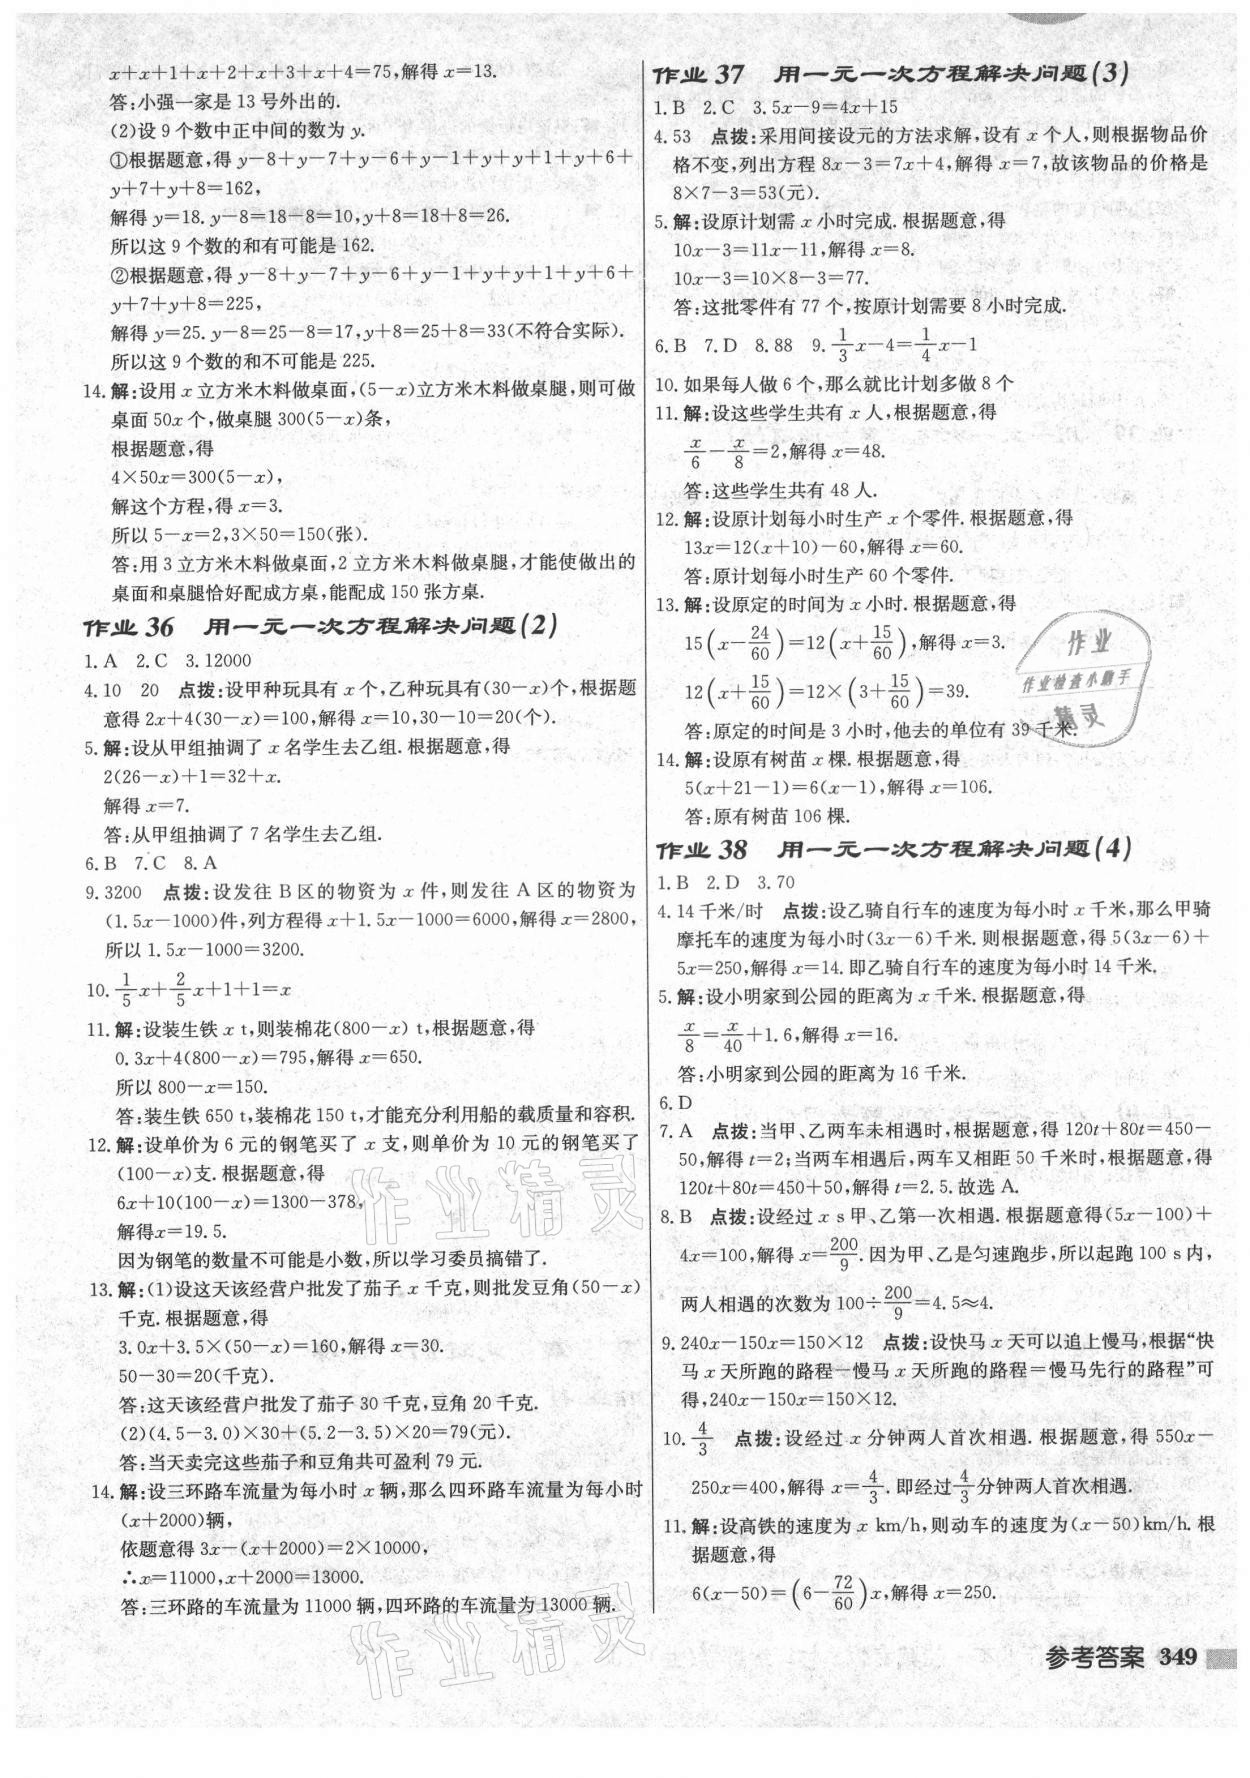 x+x+1+x+2+x+3+x+4=75,解得 x=13.
答:小强一家是 13 号外出的.
(2)设 9 个数中正中间的数为 y.
①根据题意,得 y-8+y-7+y-6+y-1+y+y+1+y+6+
y+7+y+8=162,
解得 y=18. y-8=18-8=10,y+8=18+8=26.
所以这 9 个数的和有可能是 162.
②根据题意,得 y-8+y-7+y-6+y-1+y+y+1+y+6+
y+7+y+8=225,
解得 y=25. y-8=25-8=17,y+8=25+8=33(不符合实际).
所以这 9 个数的和不可能是 225.
14. 解:设用 x 立方米木料做桌面,(5-x)立方米木料做桌腿,则可做
桌面 50x 个,做桌腿 300(5-x)条,
根据题意,得
4×50x=300(5-x),
解这个方程,得 x=3.
所以 5-x=2,3×50=150(张).
答:用 3 立方米木料做桌面,2 立方米木料做桌腿,才能使做出的
桌面和桌腿恰好配成方桌,能配成 150 张方桌.
作业 36 用一元一次方程解决问题(2)
1. A 2. C 3. 12000
4. 10 20 点拨:设甲种玩具有 x 个,乙种玩具有(30-x)个,根据题
意得 2x+4(30-x)=100,解得 x=10,30-10=20(个).
5. 解:设从甲组抽调了 x 名学生去乙组. 根据题意,得
2(26-x)+1=32+x.
解得 x=7.
答:从甲组抽调了 7 名学生去乙组.
6. B 7. C 8. A
9. 3200 点拨:设发往 B 区的物资为 x 件,则发往 A 区的物资为
(1.5x-1000)件,列方程得 x+1.5x-1000=6000,解得 x=2800,
所以 1.5x-1000=3200.
10. 1/5x+2/5x+1+1=x
11. 解:设装生铁 x t,则装棉花(800-x) t,根据题意,得
0.3x+4(800-x)=795,解得 x=650.
所以 800-x=150.
答:装生铁 650 t,装棉花 150 t,才能充分利用船的载质量和容积.
12. 解:设单价为 6 元的钢笔买了 x 支,则单价为 10 元的钢笔买了
(100-x)支. 根据题意,得
6x+10(100-x)=1300-378,
解得x=19.5.
因为钢笔的数量不可能是小数,所以学习委员搞错了.
13. 解:(1)设这天该经营户批发了茄子 x 千克,则批发豆角(50-x)
千克. 根据题意,得
3.0x+3.5×(50-x)=160,解得 x=30.
50-30=20(千克).
答:这天该经营户批发了茄子 30 千克,豆角 20 千克.
(2)(4.5-3.0)×30+(5.2-3.5)×20=79(元).
答:当天卖完这些茄子和豆角共可盈利 79 元.
14. 解:设三环路车流量为每小时 x 辆,那么四环路车流量为每小时
(x+2000)辆,
依题意得 3x-(x+2000)=2×10000,
∴x=11000,x+2000=13000.
答:三环路的车流量为 11000 辆,四环路的车流量为 13000 辆.
作业 37 用一元一次方程解决问题(3)
1. B 2. C 3. 5x-9=4x+15
4. 53 点拨:采用间接设元的方法求解,设有 x 个人,则根据物品价
格不变,列出方程 8x-3=7x+4,解得 x=7,故该物品的价格是
8×7-3=53(元).
5. 解:设原计划需 x 小时完成. 根据题意,得
10x-3=11x-11,解得 x=8.
10x-3=10×8-3=77.
答:这批零件有 77 个,按原计划需要 8 小时完成.
6. B 7. D 8. 88 9. 1/3x-4=1/4x-1
10. 如果每人做 6 个,那么就比计划多做 8 个
11. 解:设这些学生共有 x 人,根据题意,得
x/6-x/8=2,解得 x=48.
答:这些学生共有 48 人.
12. 解:设原计划每小时生产 x 个零件. 根据题意,得
13x=12(x+10)-60,解得 x=60.
答:原计划每小时生产 60 个零件.
13. 解:设原定的时间为 x 小时. 根据题意,得
15(x-24/60)=12(x+15/60),解得 x=3.
12(x+15/60)=12×(3+15/60)=39.
答:原定的时间是 3 小时,他去的单位有 39 千米.
14. 解:设原有树苗 x 棵. 根据题意,得
5(x+21-1)=6(x-1),解得 x=106.
答:原有树苗 106 棵.
作业 38 用一元一次方程解决问题(4)
1. B 2. D 3. 70
4. 14 千米/时 点拨:设乙骑自行车的速度为每小时 x 千米,那么甲骑
摩托车的速度为每小时(3x-6)千米. 则根据题意,得 5(3x-6)+
5x=250,解得 x=14. 即乙骑自行车的速度为每小时 14 千米.
5. 解:设小明家到公园的距离为 x 千米. 根据题意,得
x/8=x/40+1.6,解得 x=16.
答:小明家到公园的距离为 16 千米.
6. D
7. A 点拨:当甲、乙两车未相遇时,根据题意,得 120t+80t=450-
50,解得 t=2;当两车相遇后,两车又相距 50 千米时,根据题意,得
120t+80t=450+50,解得 t=2.5. 故选 A.
8. B 点拨:设经过 x s 甲、乙第一次相遇. 根据题意得(5x-100)+
4x=100,解得 x=200/9. 因为甲、乙是匀速跑步,所以起跑 100 s 内,
两人相遇的次数为 100÷200/9=4.5≈4.
9. 240x-150x=150×12 点拨:设快马 x 天可以追上慢马,根据“快
马 x 天所跑的路程-慢马 x 天所跑的路程=慢马先行的路程”可
得,240x-150x=150×12.
10. 4/3 点拨:设经过 x 分钟两人首次相遇. 根据题意,得 550x-
250x=400,解得 x=4/3. 即经过4/3分钟两人首次相遇.
11. 解:设高铁的速度为 x km/h,则动车的速度为(x-50)km/h. 根
据题意,得
6(x-50)=(6-72/60)x,解得 x=250.
参考答案 349
作业
作业检查小助手
精灵
作业精灵
作业精灵